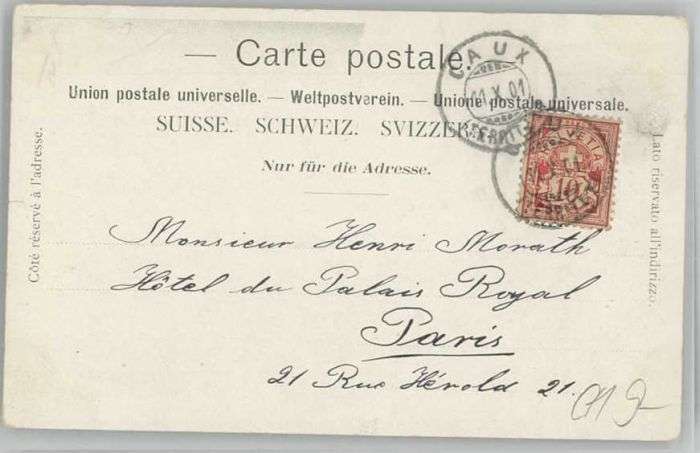 — Carte postale.
Union postale universelle. — Weltpostverein. — Unione postale universale.
SUISSE. SCHWEIZ. SVIZZERA.
Nur für die Adresse.
Côté réservé à l'adresse.
Lato riservato all'indirizzo.
CAUX
01.X.01
HELVETIA
10
Monsieur Henri Morath
Hôtel du Palais Royal
Paris
21 Rue Hérold 21.